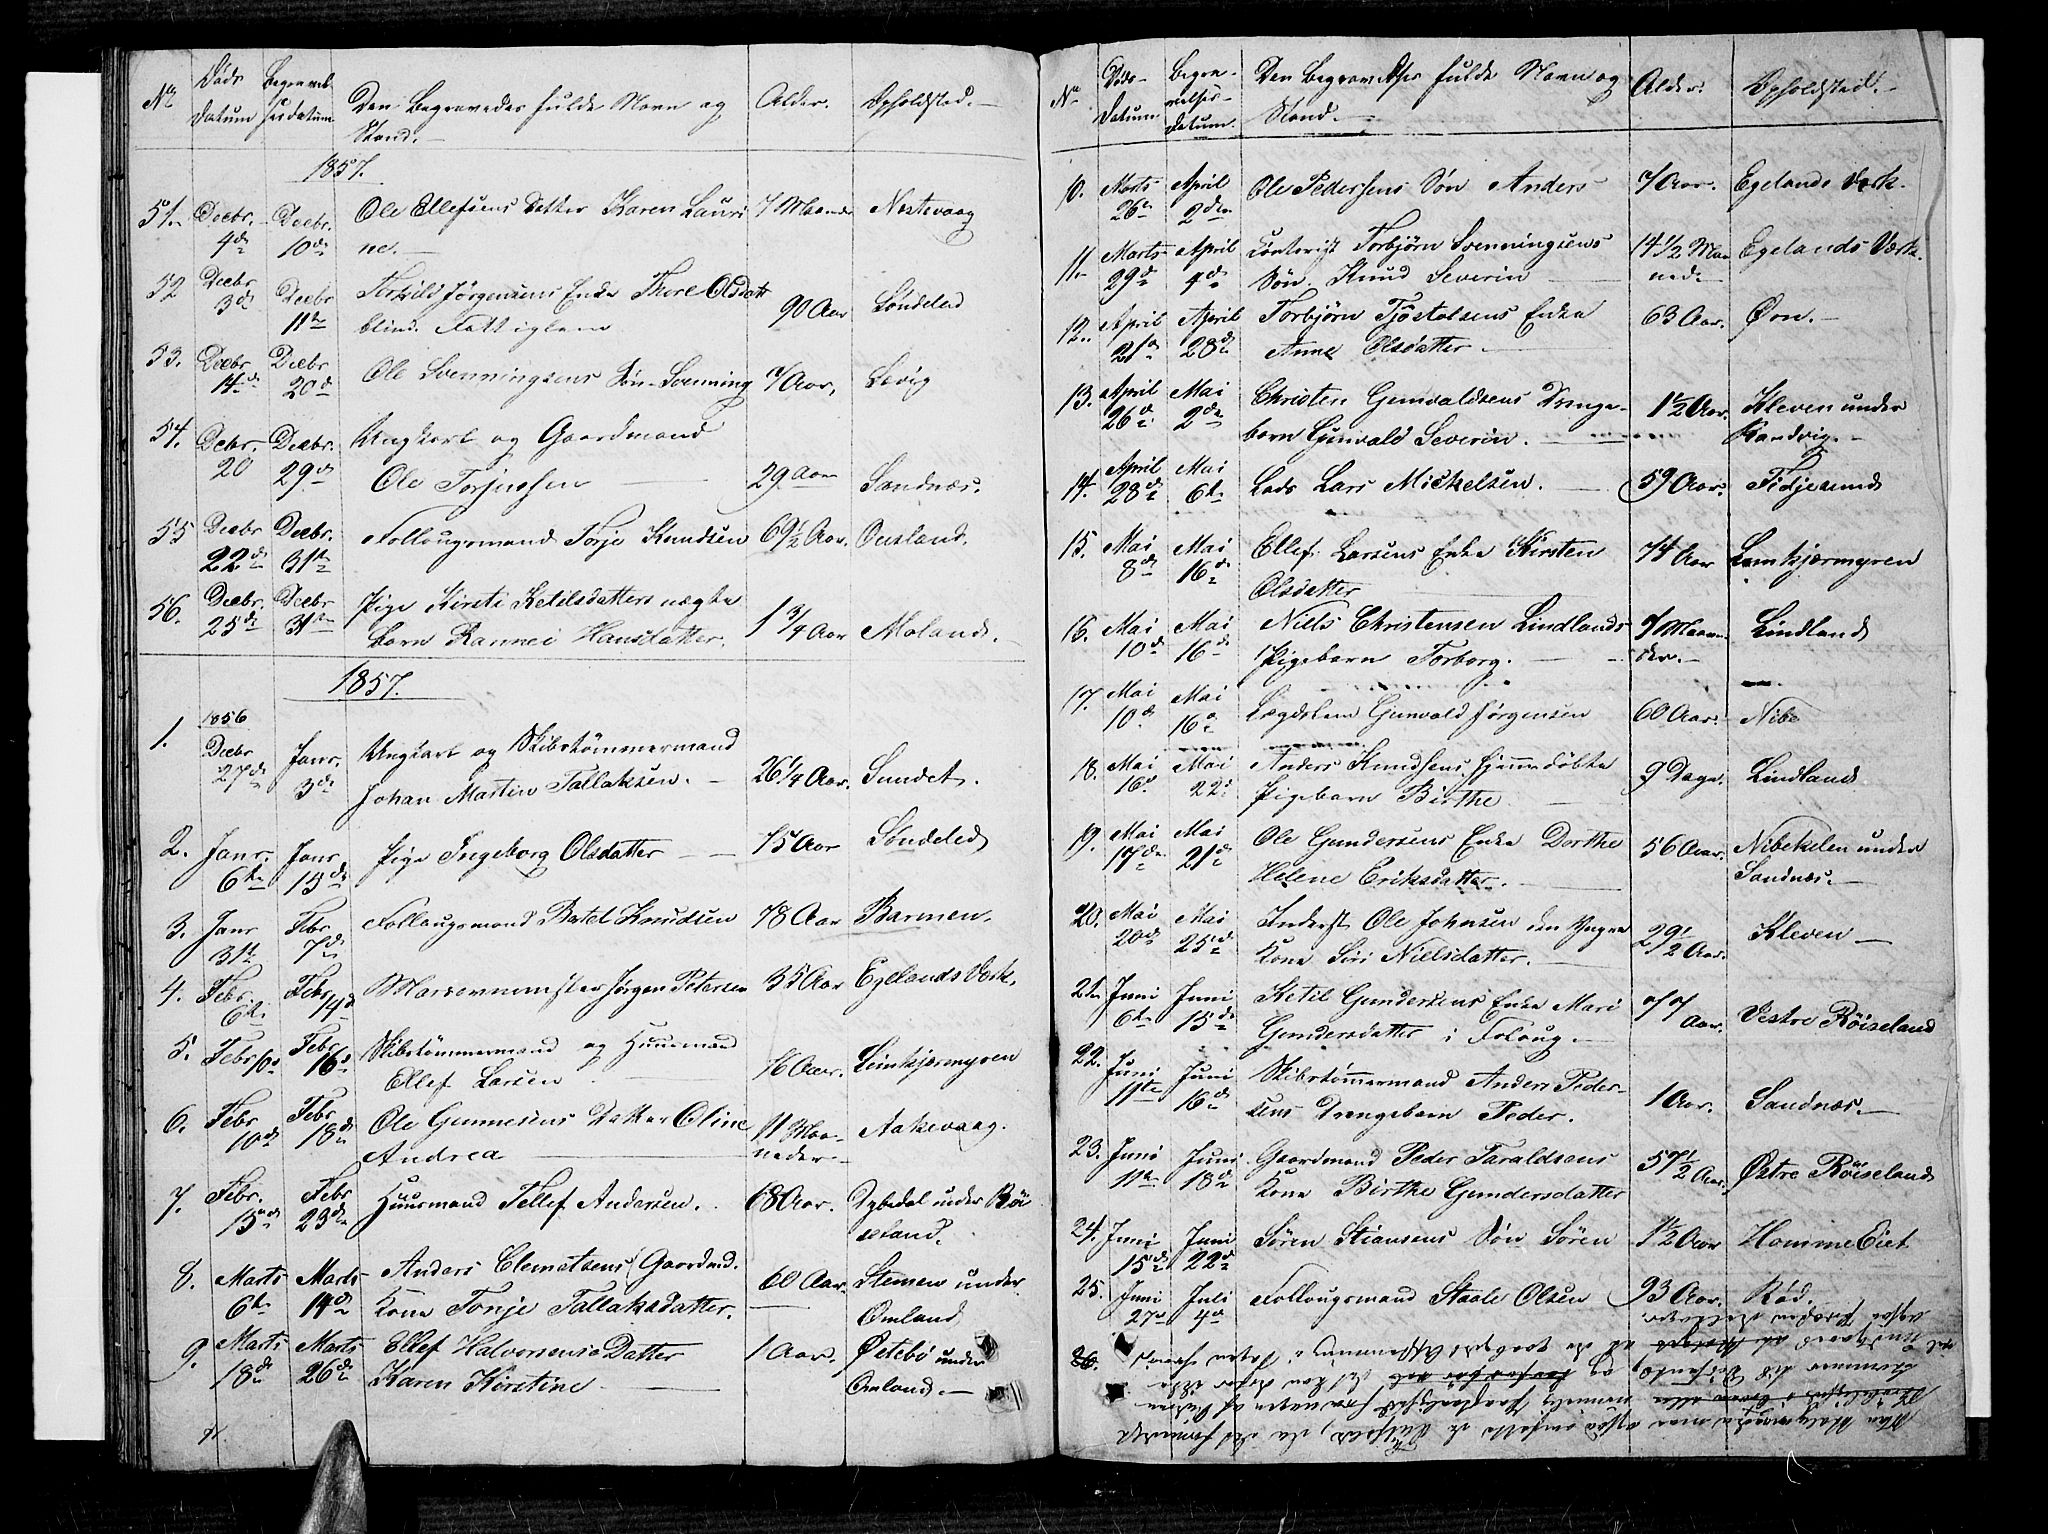 No Døds Datum Begravelsesdatum Den Begravedes fulde Navn og Stand.- Alder. Opholdsted.-
1857.
51. Decbr. 4de Decbr. 10de Ole Ellefsens Datter Karen Lauri 7 Maaneder Nestevaag
ne.-
52 Decbr 3de Decbr. 11te Terkild Jørgensens Enke Thore Olsdatt 90 Aar Søndeled
blind. Fattiglem
53. Decbr 14de Decbr 20de Ole Svenningsens Søn Svenning 7 Aar, Lævig
54. Decbr. 20 Decbr. 29de Ungkarl og Gaardmand
Ole Torjussen 29 Aar Sandnæs.
55 Decbr 22de Decbr. 31te Follougsmand Torje Knudsen 69 1/2 Aar. Ousland.
56. Decbr. 25de Decbr 31te Pige Kirsti Ketilsdatters uægte
barn Rannei Hansdatter. 1 3/4 Aar Moland.
1857.
1. 1856 Decbr 27de Janr. 3de Ungkarl og Skibstømmermand
Johan Martin Tallaksen. 26 1/4 Aar. Sundet.
2. Janr. 6te Janr. 15de Pige Ingeborg Olsdatter 75 Aar Søndeled
3. Janr 31te Febr. 7de Follougsmand Bertel Knudsen 78 Aar Barmen.
4. Febr. 6te Febr 14de Masovnmester Jørgen Petersen 35 Aar Egelands Værk.
5. Febr 10de Febr. 16de Skibstømmermand og Huusmand
Ellef Larsen 76 Aar. Limkjærmyren
6. Febr 10de Febr 18de Ole Gunnesens Datter Oline 11 Maa-
Andrea neder- Aakevaag.
7. Febr. 15de Febr 23de Huusmand Tellef Andersen. 68 Aar. Dybedal under Röi
seland.
8. Marts 6te Marts 14de Anders Clemetsens (Gaardmd. 60 Aar. Stemen under
Kone Tonje Tallaksdatter. Omland
9. Marts 18de Marts 26de Ellef Halvorsens Datter 1 Aar. Østebø under
Karen Kirstine Omland.-
No Døds-Datum Begravelses-Datum. Den Begravedes fulde Navn og Stand.- Alder. Opholdsted.-
10. Marts 26de April 2den Ole Pedersens Søn Anders 7 Aar. Egelands Værk.
11. Marts 29de April 4de Contorist Torbjørn Svenningsens 14 1/2 Maa Egelands Værk.
Søn Knud Severin neder
12. April 21de April 28de Torbjørn Tjøstolsens Enke 63 Aar. Øen.-
Anne Olsdatter.
13. April 26de Mai 2den Christen Gunvaldsens Drenge- 1 1/2 Aar. Kleven under
barn Gunvald Severin. Sandvig.-
14. April 28de Mai 6te Lods Lars Mickelsen. 59 Aar. Fidjesund
15. Mai 8de Mai 16de Ellef Larsens Enke Kirsten 74 Aar Limkjærmyren
Olsdatter
16. Mai 10de Mai 16de Niels Christensen Lindlands 7 Maan Lindland
Pigebarn Torborg. der.-
17. Mai 10de Mai 16de Lægdslem Gunvald Jørgensen 60 Aar. Nibe
18. Mai 16de Mai 22de Anders Knudsens hjemmedøbte 9 Dage. Lindland
Pigebarn Birthe
19. Mai 17de Mai 21de Ole Gundersens Enke Dorthe 56 Aar. Nibekilen under
Helene Eriksdatter. Sandnæs.-
20. Mai 20de Mai 25de Inderst Ole Johnsen den Yngre 29 1/2 Aar. Kleven
Kone Siri Nielsdatter.
21. Juni 6te Juni 15de Ketil Gundersens Enke Mari 77 Aar. Vestre Röiseland
Gundersdatter i Foloug.-
22. Juni 11te Juni 16de Skibstømmermand Anders Peder- 1 Aar. Sandnæs.-
sens Drengebarn Peder.
23. Juni 11te Juni 18de Gaardmand Peder Taraldsens 57 1/2 Aar. Østre Röiseland
Kone Birthe Gundersdatter
24. Juni 15de Juni 22de Søren Stiansens Søn Søren 1 1/2 Aar Homme Eiet
25. Juni 27de Juli 4de Follougsmand Staale Olsen 93 Aar. Röd.
26.